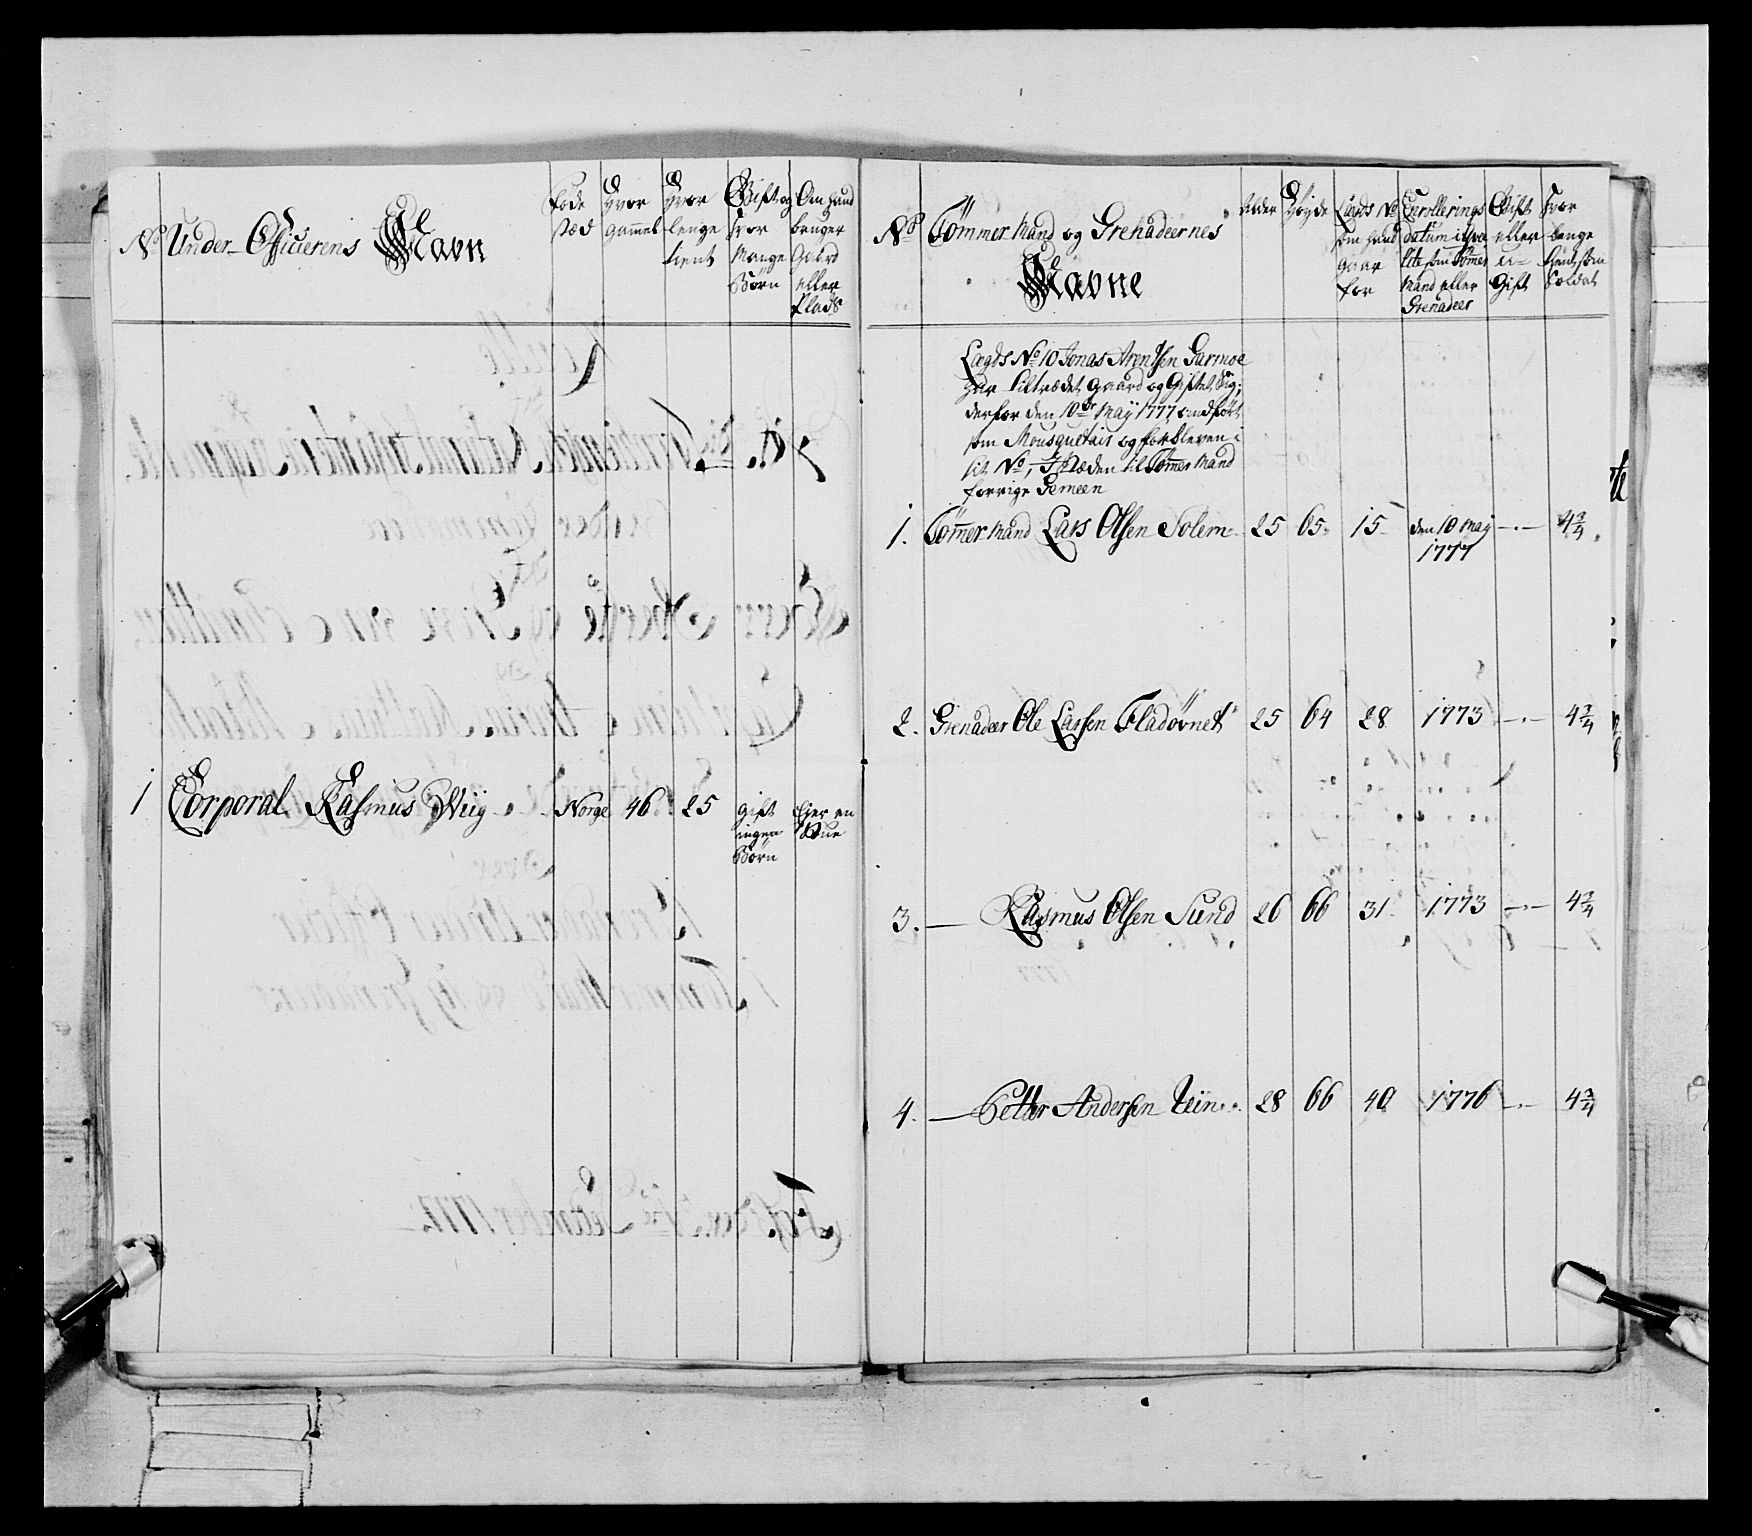 No Under-Officerens Navn
Føde stæd
Hvor gammel
Hvor lenge tient
Gift og hvor Mange Børn
Om hand bruger Gaard eller Plads
1 Corporal Rasmus Wiig Norge 46 25 gift ingen Børn Ejer en Stue
No Tømmermand og Grenadeernes Navne
Alder
Høyde
Lægds No som hand gaar for
Enrollerings datum i qvalite som Tømmermand eller Grenadeer
Gift eller U-Gift
Hvor lenge tient som Soldat
Lægds No 10 Jonas Arentsen Garmoe
har tiltrædet Gaard og Giftet Sig;
derfor den 10de Maÿ 1777 omdført
som Mousquetair og forbleven i
sit No, I stæden til Tømmermand
forrige Gemeen
1. Tømmermand Lars Olsen Solem 25 65 15 den 10 Maÿ 1777 -.- 4 3/4
2. Grenadeer Ole Larsen Fladøvnet 25 64 28 1773 -.- 4 3/4
3. — Rasmus Olsen Sund 26 66 31 1773 -.- 4 3/4
4. — Petter Andersen 28 66 40 1776 -.- 4 3/4